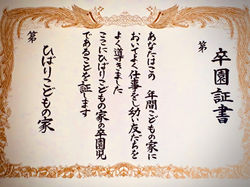 卒園証書
第
あなたはこの 年間こどもの家に
おいてよく仕事をし幼い友だちを
よく導きました
ここにひばりこどもの家の卒園児
であることを証します
第
ひばりこどもの家